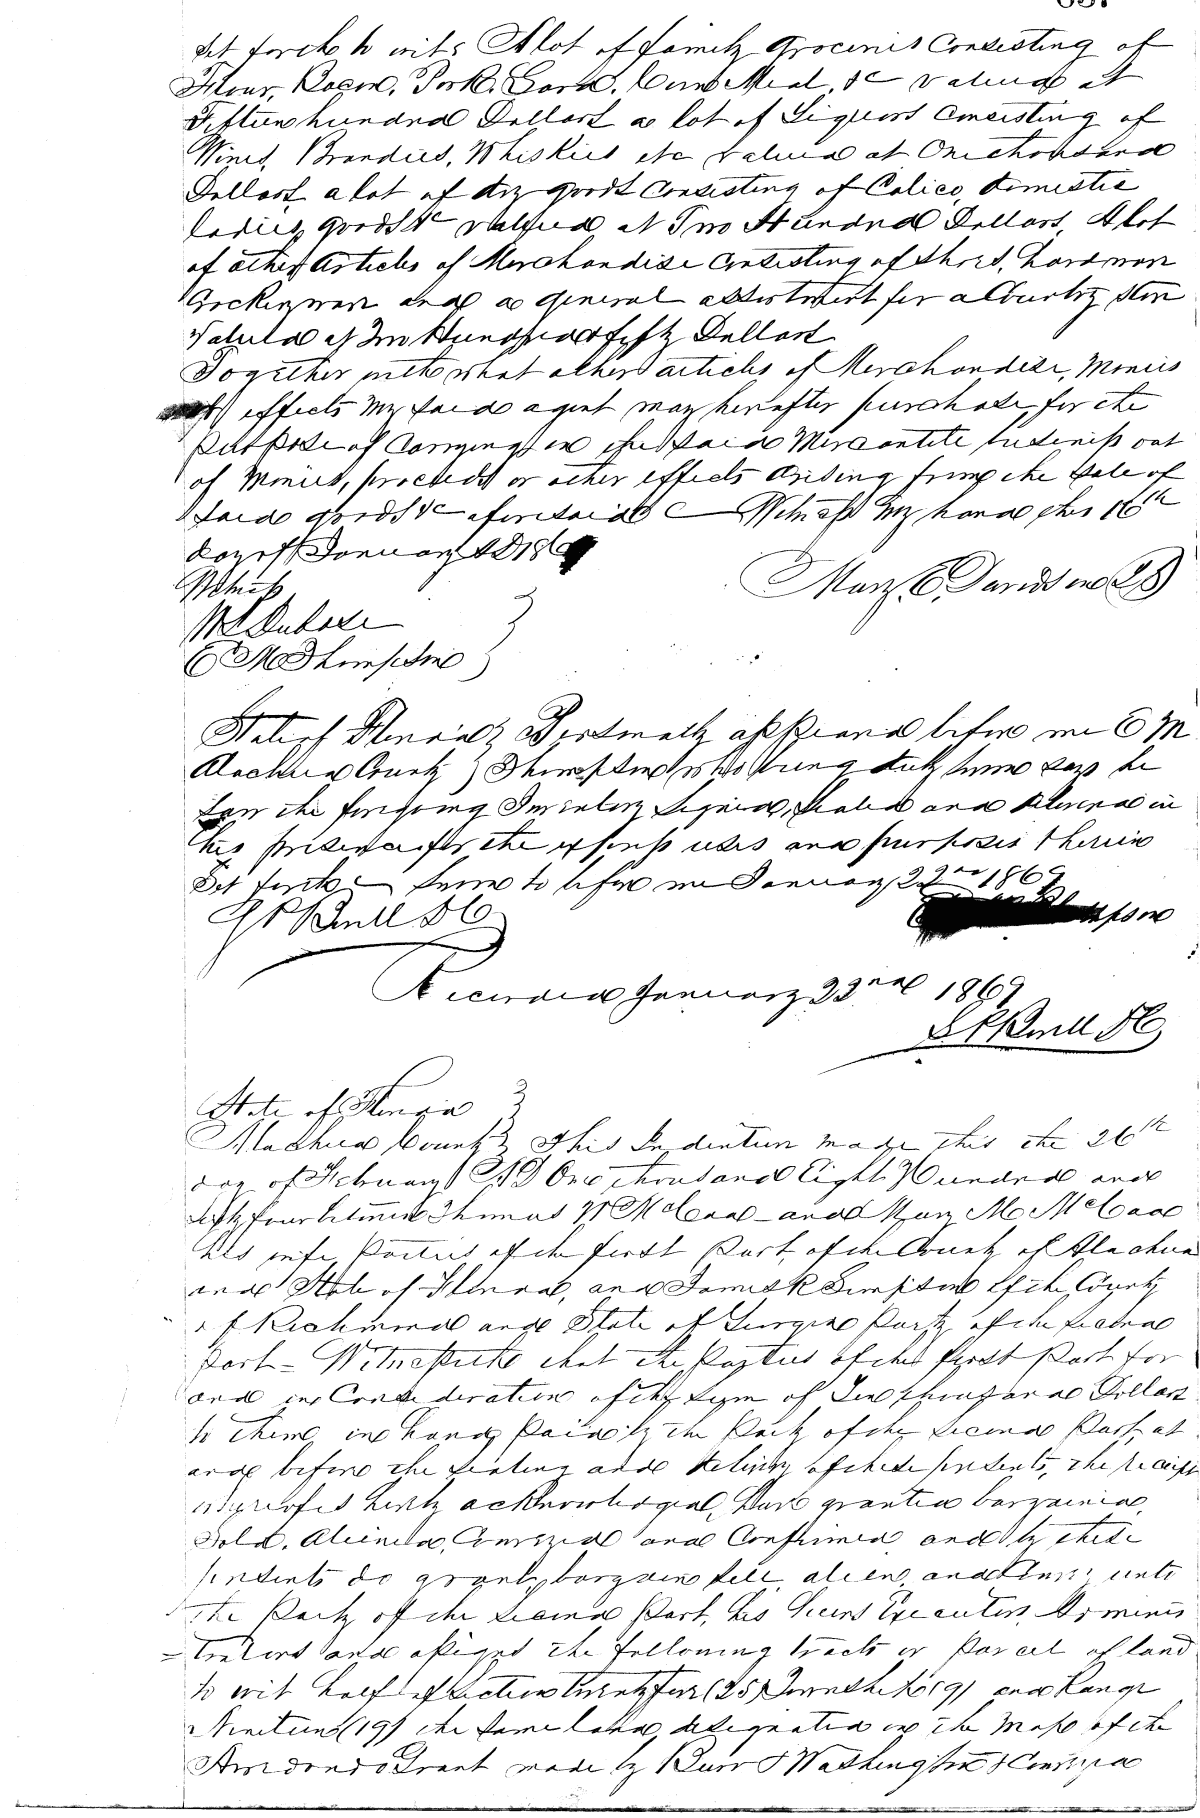 Set forth to wit: A lot of family Groceries Consisting of
Flour, Bacon, Pork, Lard, Corn Meal, &c valued at
Fifteen hundred Dollars a lot of Liquors Consisting of
Wines, Brandies, Whiskies etc valued at One thousand
Dollars, a lot of dry goods Consisting of Calico, domestic
ladies goods &c valued at Two Hundred Dollars, A lot
of other Articles of Merchandise Consisting of Shoes, hardware
Crockeryware and a general assortment for a Country Store
Valued at Two Hundred & fifty Dollars
Together with what other articles of Merchandise, Monies
effects My said agent may hereafter purchase for the
purpose of Carrying on the said Mercantile business out
of Monies, proceeds or other effects arising from the Sale of
Said goods &c aforesaid Witness My hand this 16th
day of January AD 186
Witness
Wm Dubose
E M Thompson
Mary E. Davidson LS
State of Florida Personally appeared before me E M
Alachua County Thompson who being duly sworn says he
saw the foregoing Inventory Signed, Sealed and delivered in
his presence for the express uses and purposes therein
Set forth Sworn to before me January 22nd 1869
Recorded January 22nd 1869
State of Florida
Alachua County This Indenture made this the 26th
day of February AD One thousand Eight Hundred and
fifty four between Thomas W McCaa and Mary M McCaa
his wife Parties of the first Part, of the County of Alachua
and State of Florida, and James K Simpson of the County
of Richmond and State of Georgia Party of the Second
Part = Witnesseth that the Parties of the first Part for
and in Consideration of the Sum of Ten thousand Dollars
to them in hand Paid by the Party of the Second Part, at
and before the Sealing and delivery of these presents, the receipt
whereof is hereby acknowledged, have granted bargained,
Sold, Aliened, Conveyed and Confirmed and by these
presents do grant, bargain Sell, alien, and unto
the Party of the Second Part, his heirs Executors Adminis
= trators and assigns the following tracts or Parcel of land
to wit half of Section twenty five (25) Township (9) and Range
Nineteen (19) the same land designated in the Map of the
Arredondo Grant made by Burr & Washington &